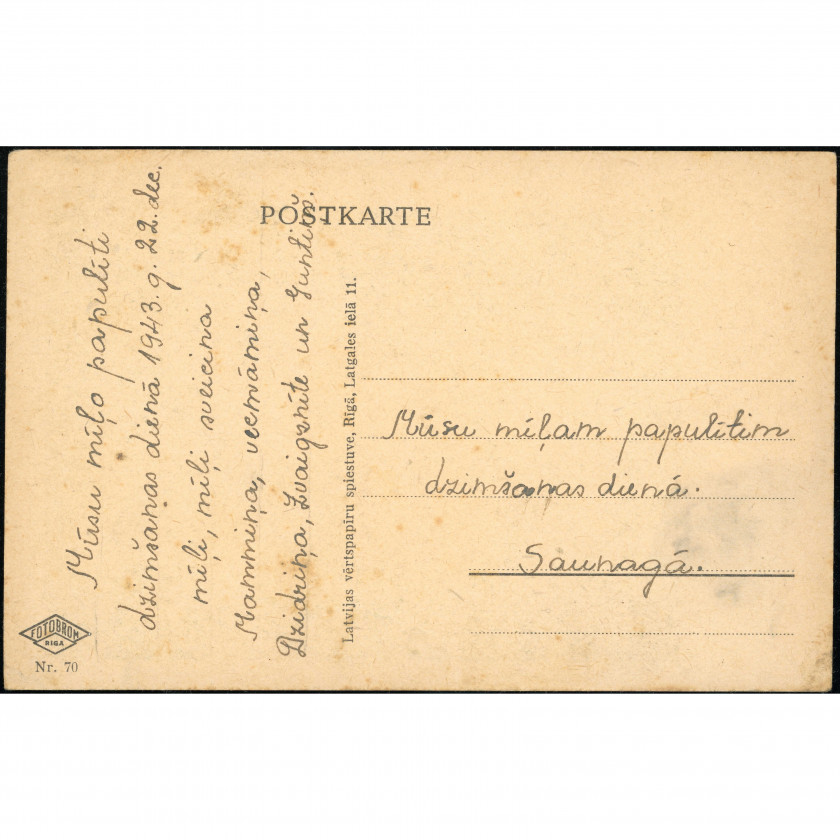 POSTKARTE
Mūsu mīļo papulīti
dzimšanas dienā 1943.g. 22. dec.
mīļi, mīļi sveicina
Mammiņa, vecmāmiņa,
Dzidriņa, Zvaigznīte un Guntiņš.
Latvijas vērtspapīru spiestuve, Rīgā, Latgales ielā 11.
Mūsu mīļam papulītim
dzimšanas dienā.
Saunagā.
FOTOBROM
RIGA
Nr. 70